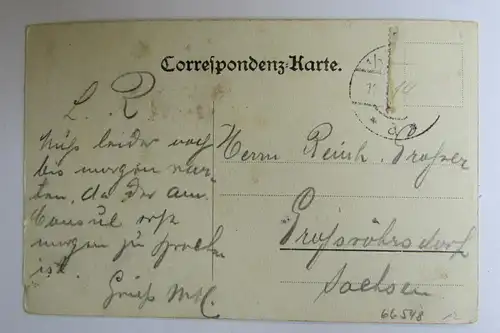 Correspondenz-Karte.
L. R
Muß leider noch
bis morgen war-
ten, da der am.
Consul erst
morgen zu sprechen
ist.
Gruß
Herrn Reinh. Großner
Großröhrsdorf
Sachsen
66548